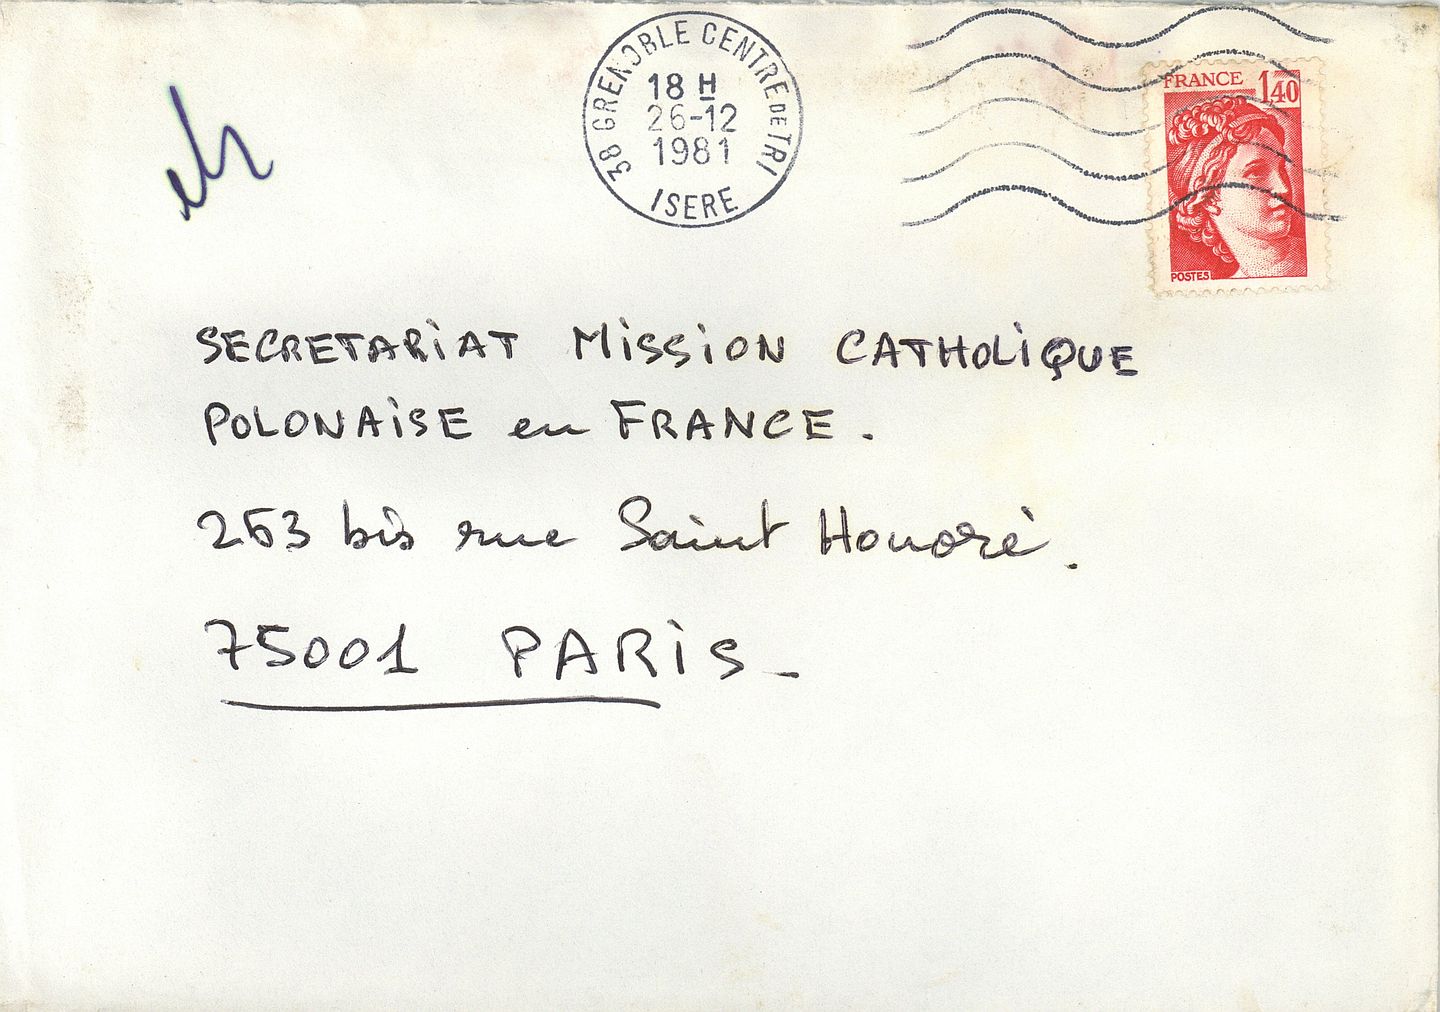 38 GRENOBLE CENTRE DE TRI
18 H
26-12
1981
ISERE
FRANCE 1,40
POSTES
SECRETARIAT MISSION CATHOLIQUE
POLONAISE en FRANCE.
263 bis rue Saint Honoré.
75001 PARIS-